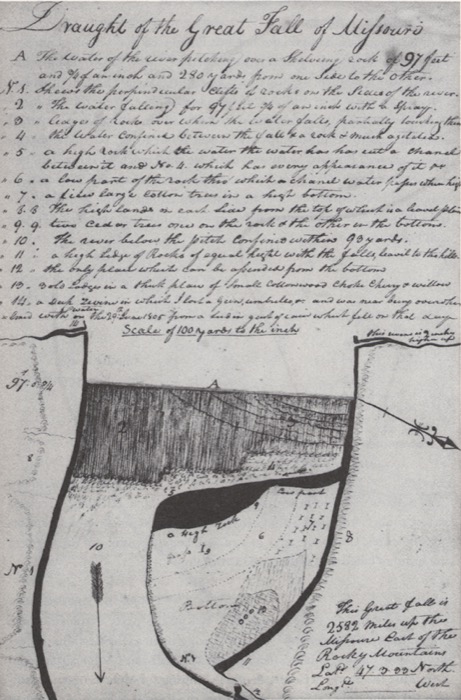 Draught of the Great Fall of Missouri
A The water of the river pitching over a Shelving rock of 97 feet
and ¾ of an inch and 280 yards from one Side to the Other.
No 1. Shews the perpendicular Clifts of rocks on the Sides of the river.
" 2 " The water falling for 97 feet ¾ of an inch with a Spray.
" 3 " Leages of Rocks over which the water falls, partially
" 4 " the Water Confined between the fall & a rock & much agitation.
" 5 " a high rock which the water the water has has cut a chanel
between it and No 4. which has every appearance of it or
" 6 " a low part of the rock thro which a chanel water passes when high
" 7 " a fiew large Cotton trees in a high bottom.
" 8. 8 The high lands on each Side from the top of which is a leavel plain
" 9. 9 two Cedar trees one on the rock & the other in the bottom.
" 10 . The river below the Pitch Confined within 93 yards.
" 11 " a high Ledge of Rocks of equal hight with the falls, leavel to the hills
" 12 " the only place which can be assended from the bottom
" 13 " Solo Lodge in a thick place of Small Cottonwood Choke Cherry & willow
" 14 " a Deep revine in which I lost a Gun, umbrella, or and was near being
on the 29th June 1805 from a of rain which fell on that day
Scale of 100 yards to the inch
A
97
2
3
4
10
No 1
a High Rock
5
9
6
Low part
7
8
8
Bottom
No 1
11
This Great Fall is
2582 miles up the
Missouri East of the
Rocky Mountains
Latd 47.3.33 North
Longtd West